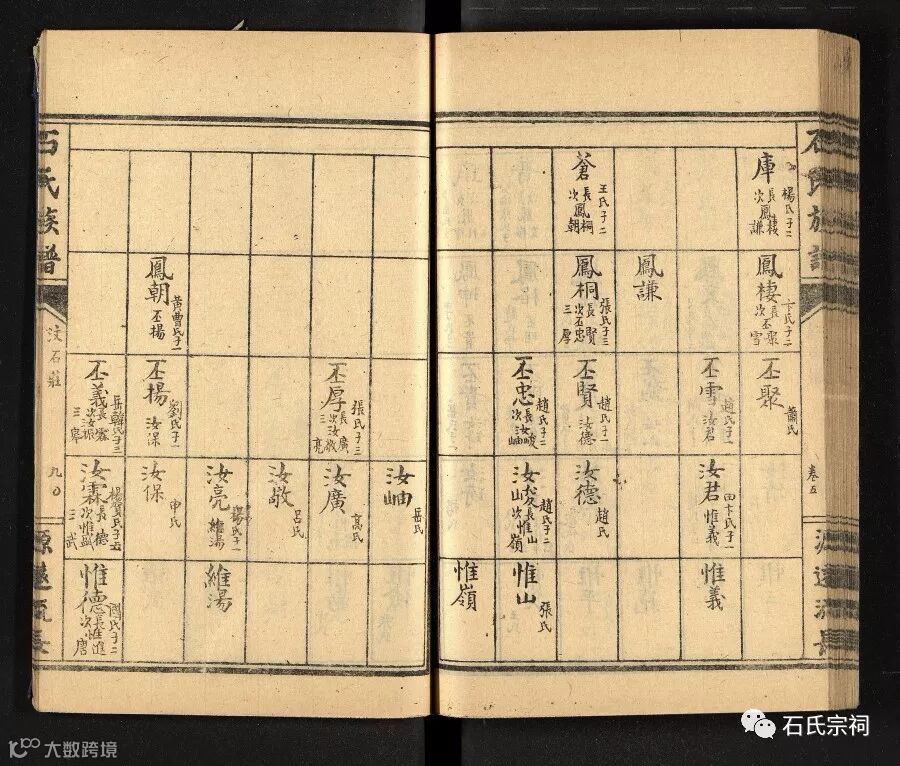 石氏族譜
卷五
源遠流長
庫
楊氏子二
長鳳棲
次鳳謙
蒼
王氏子二
長鳳桐
次鳳朝
鳳棲
卞氏子二
長丕聚
次丕雪
鳳謙
鳳桐
張氏子三
長賢
次丕忠
三厚
丕聚
蕭氏
丕雪
趙氏子一
汝君
丕賢
趙氏子一
汝德
丕忠
趙氏子二
長汝峻
次汝岫
汝君
田卞氏子一
惟義
汝德
趙氏
汝山
趙氏子二
長惟山
次惟嶺
惟義
惟山
張氏
惟嶺
鳳朝
黃曹氏子一
丕揚
丕厚
張氏子三
長廣
次汝敬
三亮
丕揚
劉氏子一
汝保
丕義
岳韓氏子三
長霖
次汝振
三
汝岫
岳氏
汝廣
高氏
汝敬
呂氏
汝亮
楊氏子一
維湯
汝保
申氏
汝霖
楊賀氏子
長德
次惟
三武
維湯
惟德
氏子二
長進
次唐
石氏族譜
汶石莊
九〇
源遠流長
石氏宗祠
大数跨境